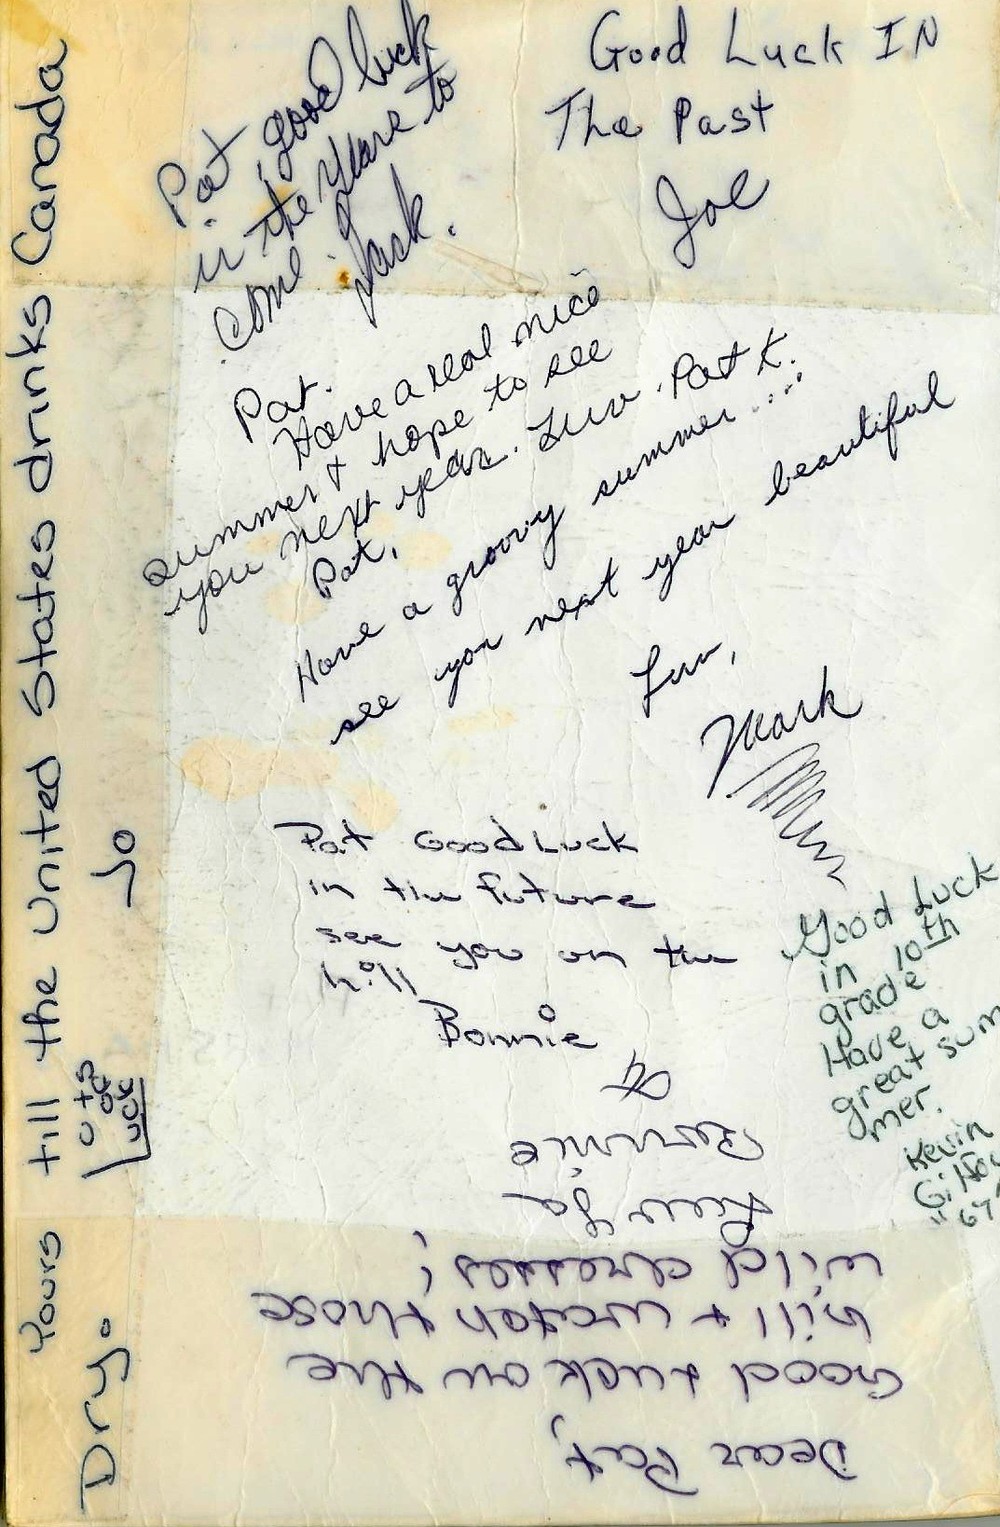 Good Luck IN
The Past
Joe
Pat, good luck
in the years to
come.
Jack.
Pat.
Have a real nice
summer + hope to see
you next year. Luv. Pat K.
Pat,
Have a groovy summer....
see you next year beautiful
Luv,
Mark
Pat Good Luck
in the future
see you on the
hill
Bonnie
Good Luck
in 10th
grade
Have a
great sum
mer.
Kevin
"67"
Dear Pat,
Good luck on the
hill + watch those
wild
Luv ya
Yours till the United States drinks Canada
Dry.
Lots
of
Luck
Jo